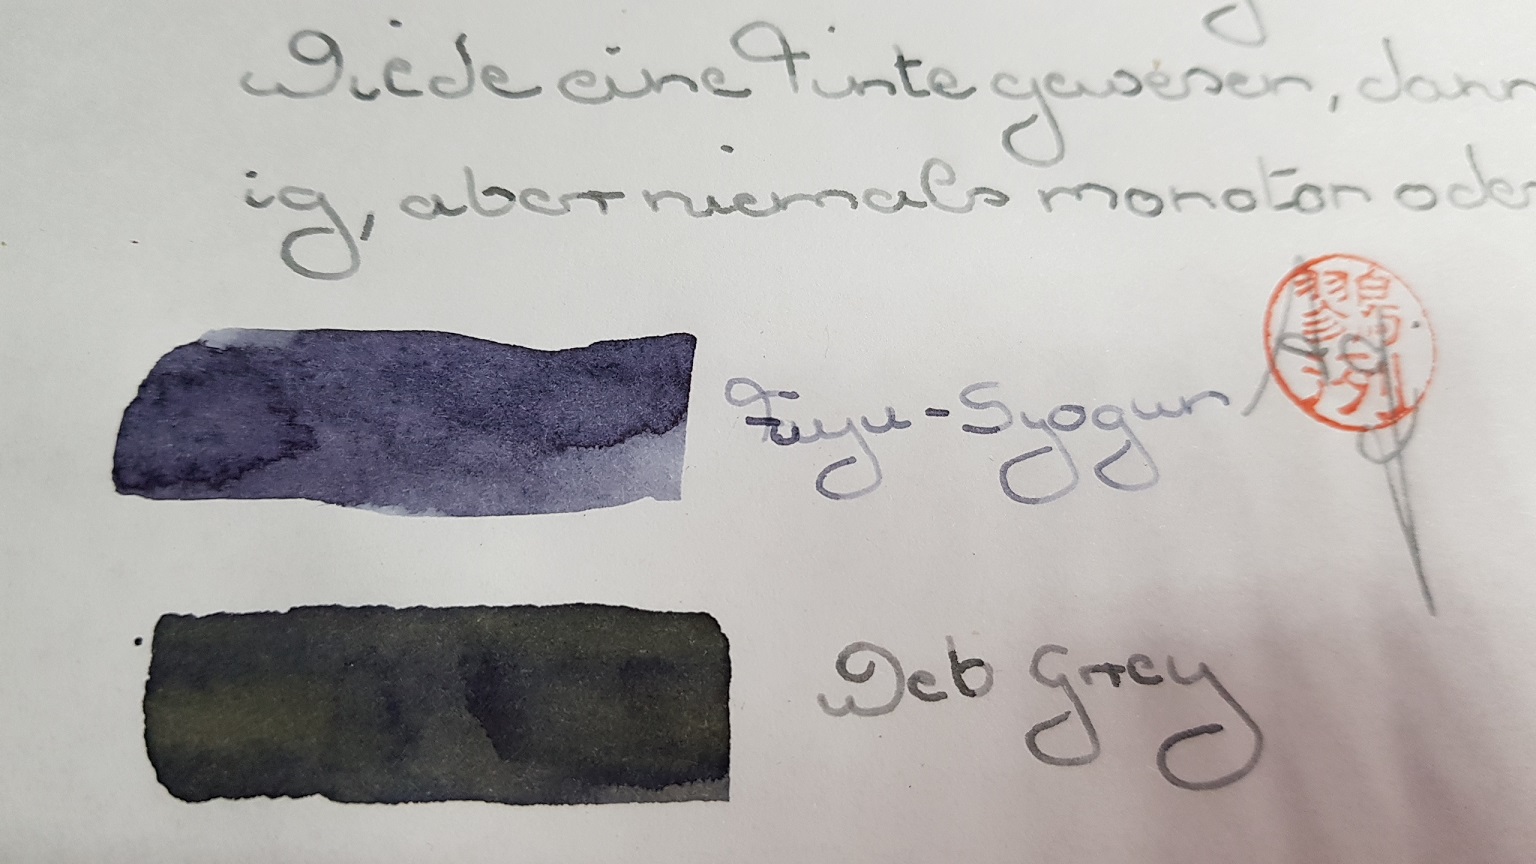 Wiede eine Tinte gewesen, dann
ig, aber niemals monoton oder
Fuyu-Syogun
Web Grey